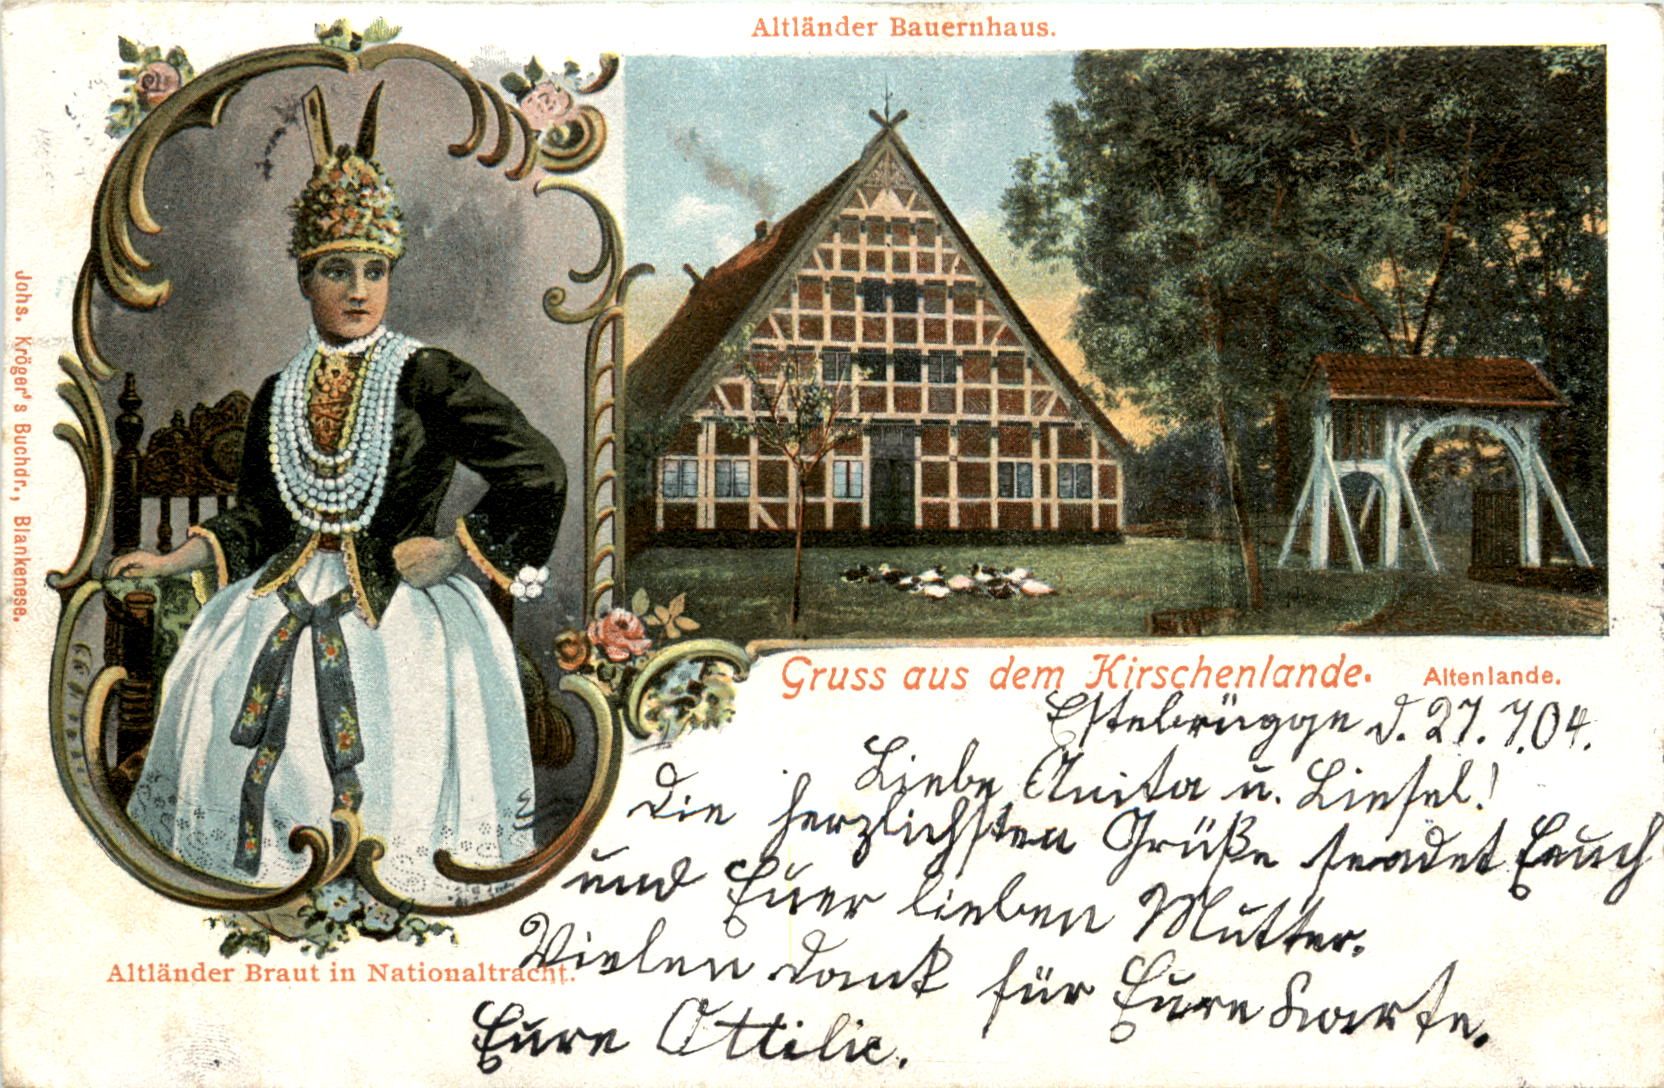 Altländer Bauernhaus.
Johs. Kröger's Buchdr., Blankenese.
Gruss aus dem Kirschenlande. Altenlande.
Altländer Braut in Nationaltracht.
Estebrügge d. 27. 7. 04.
Liebe Anita u. Liesel!
Die herzlichsten Grüße sendet Euch
und Eurer lieben Mutter.
Vielen Dank für Eure Karte.
Eure Ottilie.